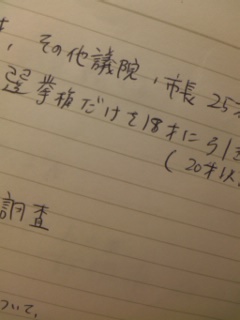 、その他議院、市長25才
選挙権だけを18才に引き
(20才以
調査
ついて、